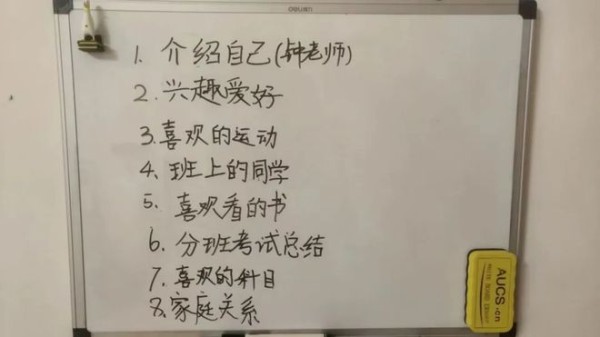 deli
1. 介绍自己(钟老师)
2. 兴趣爱好
3. 喜欢的运动
4. 班上的同学
5. 喜欢看的书
6. 分班考试总结
7. 喜欢的科目
8. 家庭关系
AUCS.cn